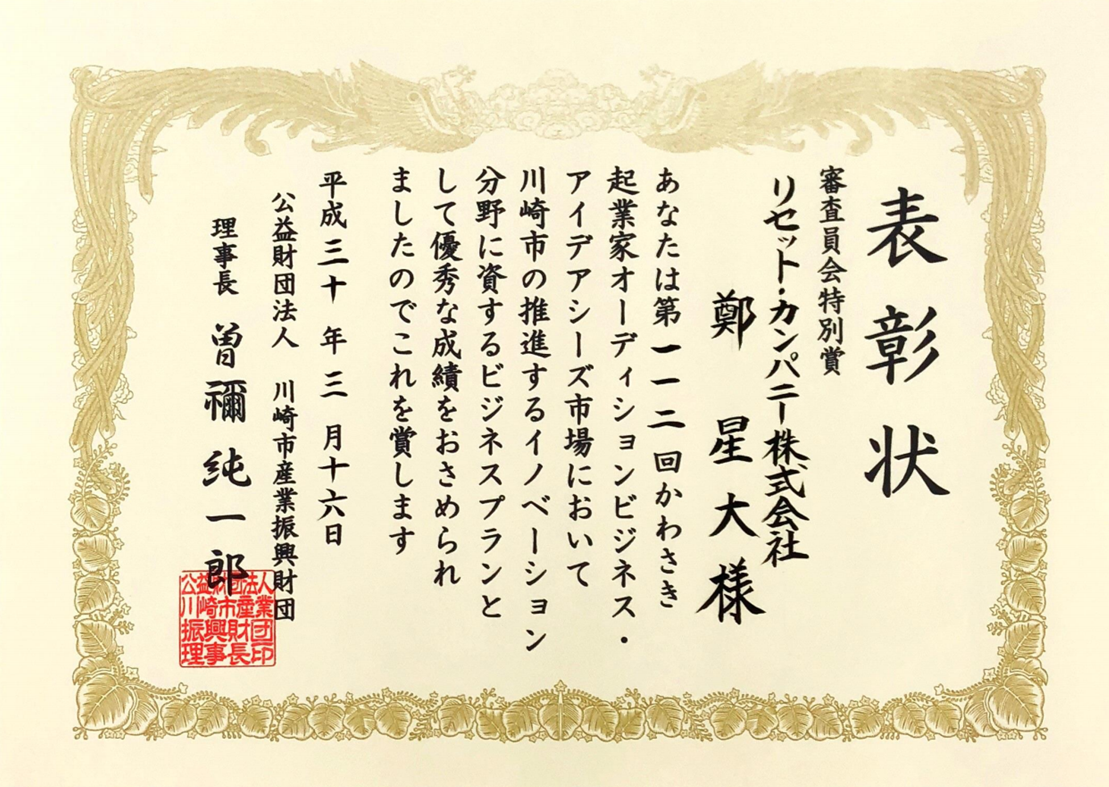 表彰状
審査員会特別賞
リセット・カンパニー株式会社
鄭 星大 様
あなたは第一一二回かわさき
起業家オーディションビジネス・
アイデアシーズ市場において
川崎市の推進するイノベーション
分野に資するビジネスプランと
して優秀な成績をおさめられ
ましたのでこれを賞します
平成三十年三月十六日
公益財団法人 川崎市産業振興財団
理事長 曽禰純一郎
公益財団法人
川崎市産業
振興財団
理事長印